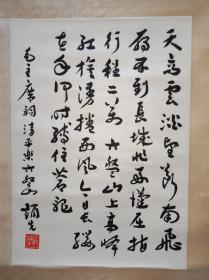 天高雲淡望断南飛
雁不到長城非好漢屈指
行程二万六盤山上高峰
红旗漫捲西风今日長纓
在手何时縛住苍龙
毛主席词清平樂六盤山 誦先